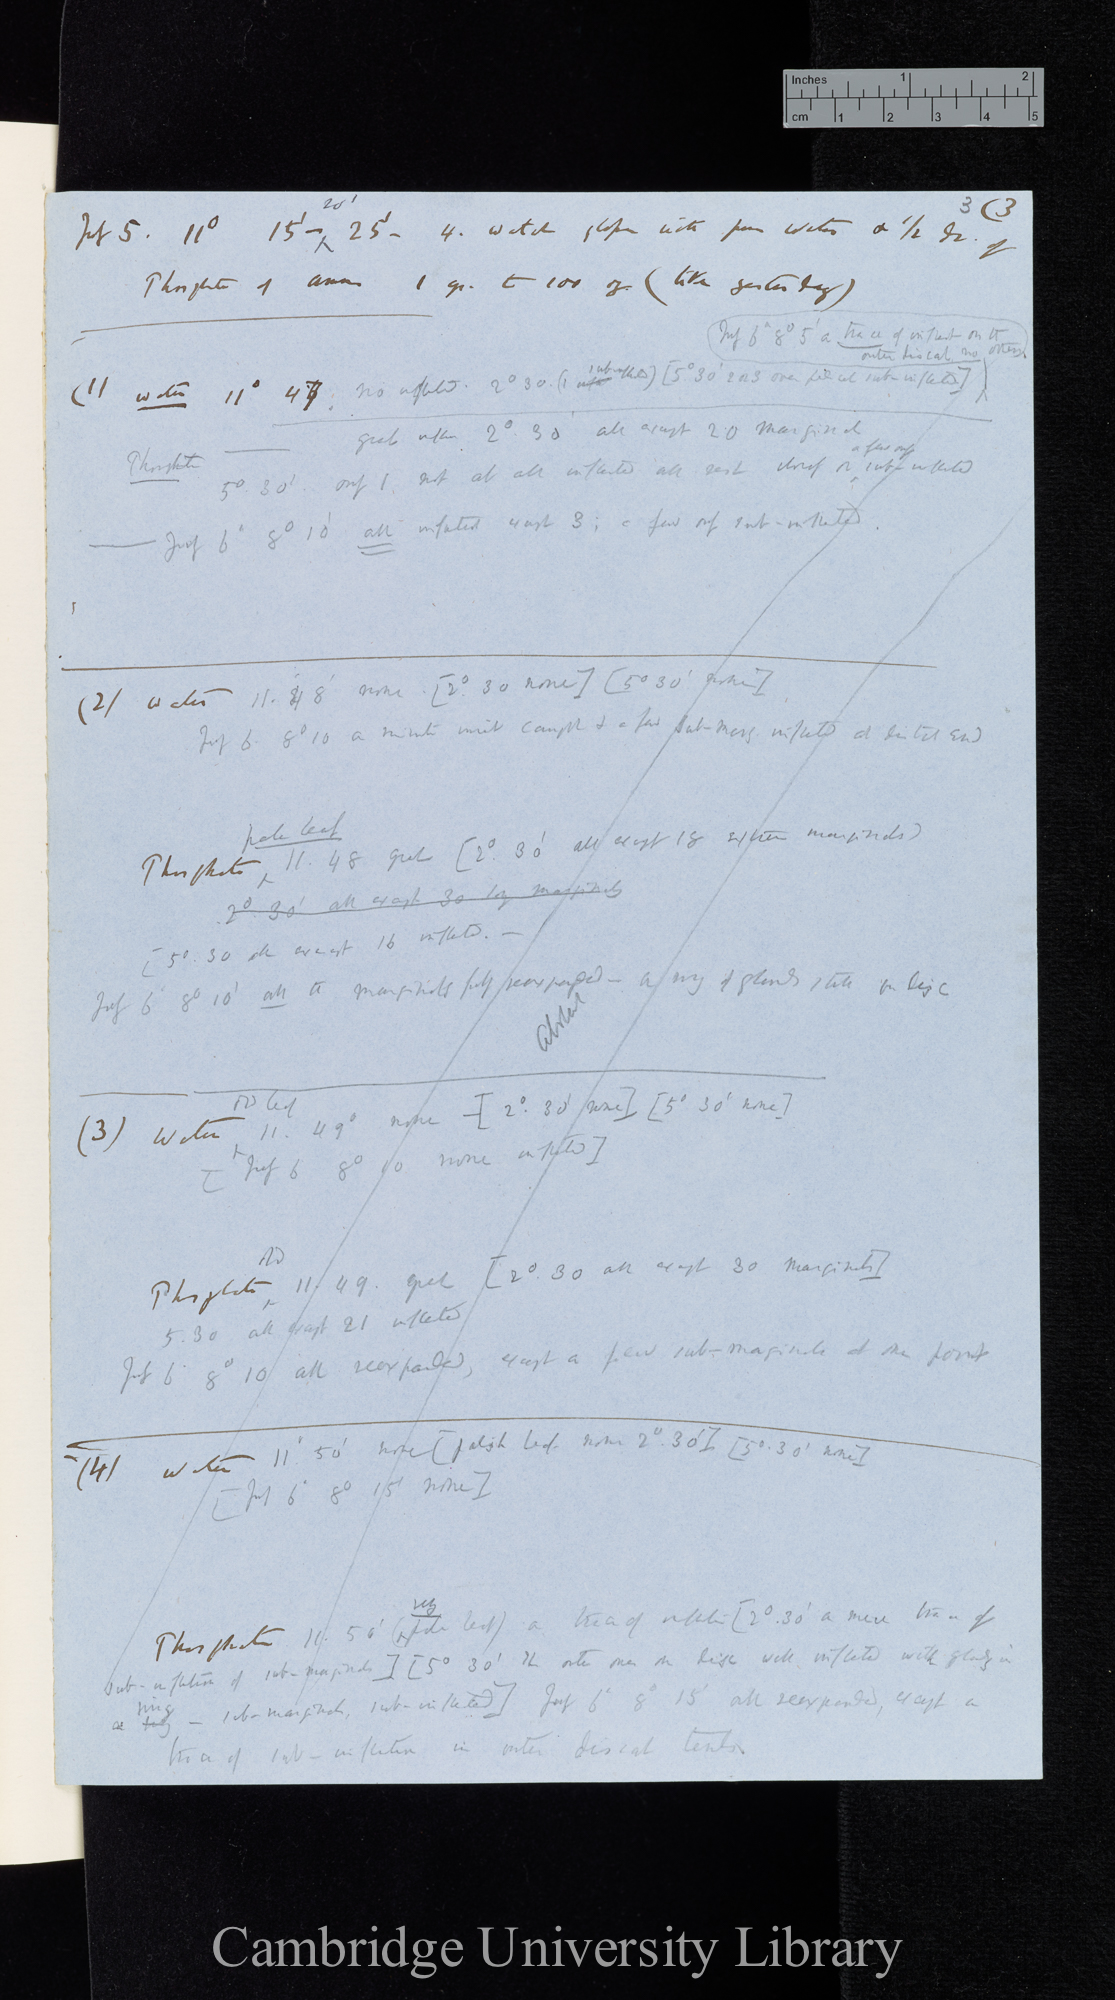 Inches 1 2
cm 1 2 3 4 5
3 (3
20'
July 5. 11° 15' - 25' - 4. watch glasses with pure water & 1/2 oz. of
Phosphate of amm 1 gr. to 100 oz. (like yesterday)
July 6' 8° 5' a trace of inflect on the
outer discal, no others
(1) water 11° 47' no inflected. 2° 30. (1 sub-inflected) [5° 30' 2 or 3 sub-inflected]
Phosphate great inflec 2° 30' all except 20 marginal
5° 30' only 1. not at all inflected all rest closed or a few only sub-inflected
July 6' 8° 10' all inflected except 3; a few only sub-inflected.
(2) water 11. 48' none [2°. 30 none] [5° 30' none]
July 6. 8° 10 a minute insect caught & a few sub-marg. inflected at distal end
pale leaf
Phosphate 11. 48 great [2°. 30' all except 18 marginals]
2° 30' all except 30 marginals
[5°. 30 all except 16 inflected. —
July 6' 8° 10' all the marginals fully reexpanded — a ring of glands still on disc
(3) water old leaf 11. 49° none [2°. 30' none] [5° 30' none]
[July 6 8° 10 none inflected]
old
Phosphate 11. 49. great [2°. 30 all except 30 marginals]
5. 30 all except 21 inflected
July 6 8° 10' all reexpanded, except a few sub-marginals at one point
(4) water 11' 50' none [palish leaf none 2°. 30'] [5°. 30' none]
[July 6' 8° 15' none]
Phosphate 11. 50' (pale leaf) a trace of inflection [2°. 30' a mere trace of
sub-inflection of sub-marginals] [5° 30' the outer ones on disc well inflected with glands in
a ring — sub-marginals, sub-inflected] July 6' 8° 15' all reexpanded, except a
trace of sub-inflection in outer discal tentac
Cambridge University Library